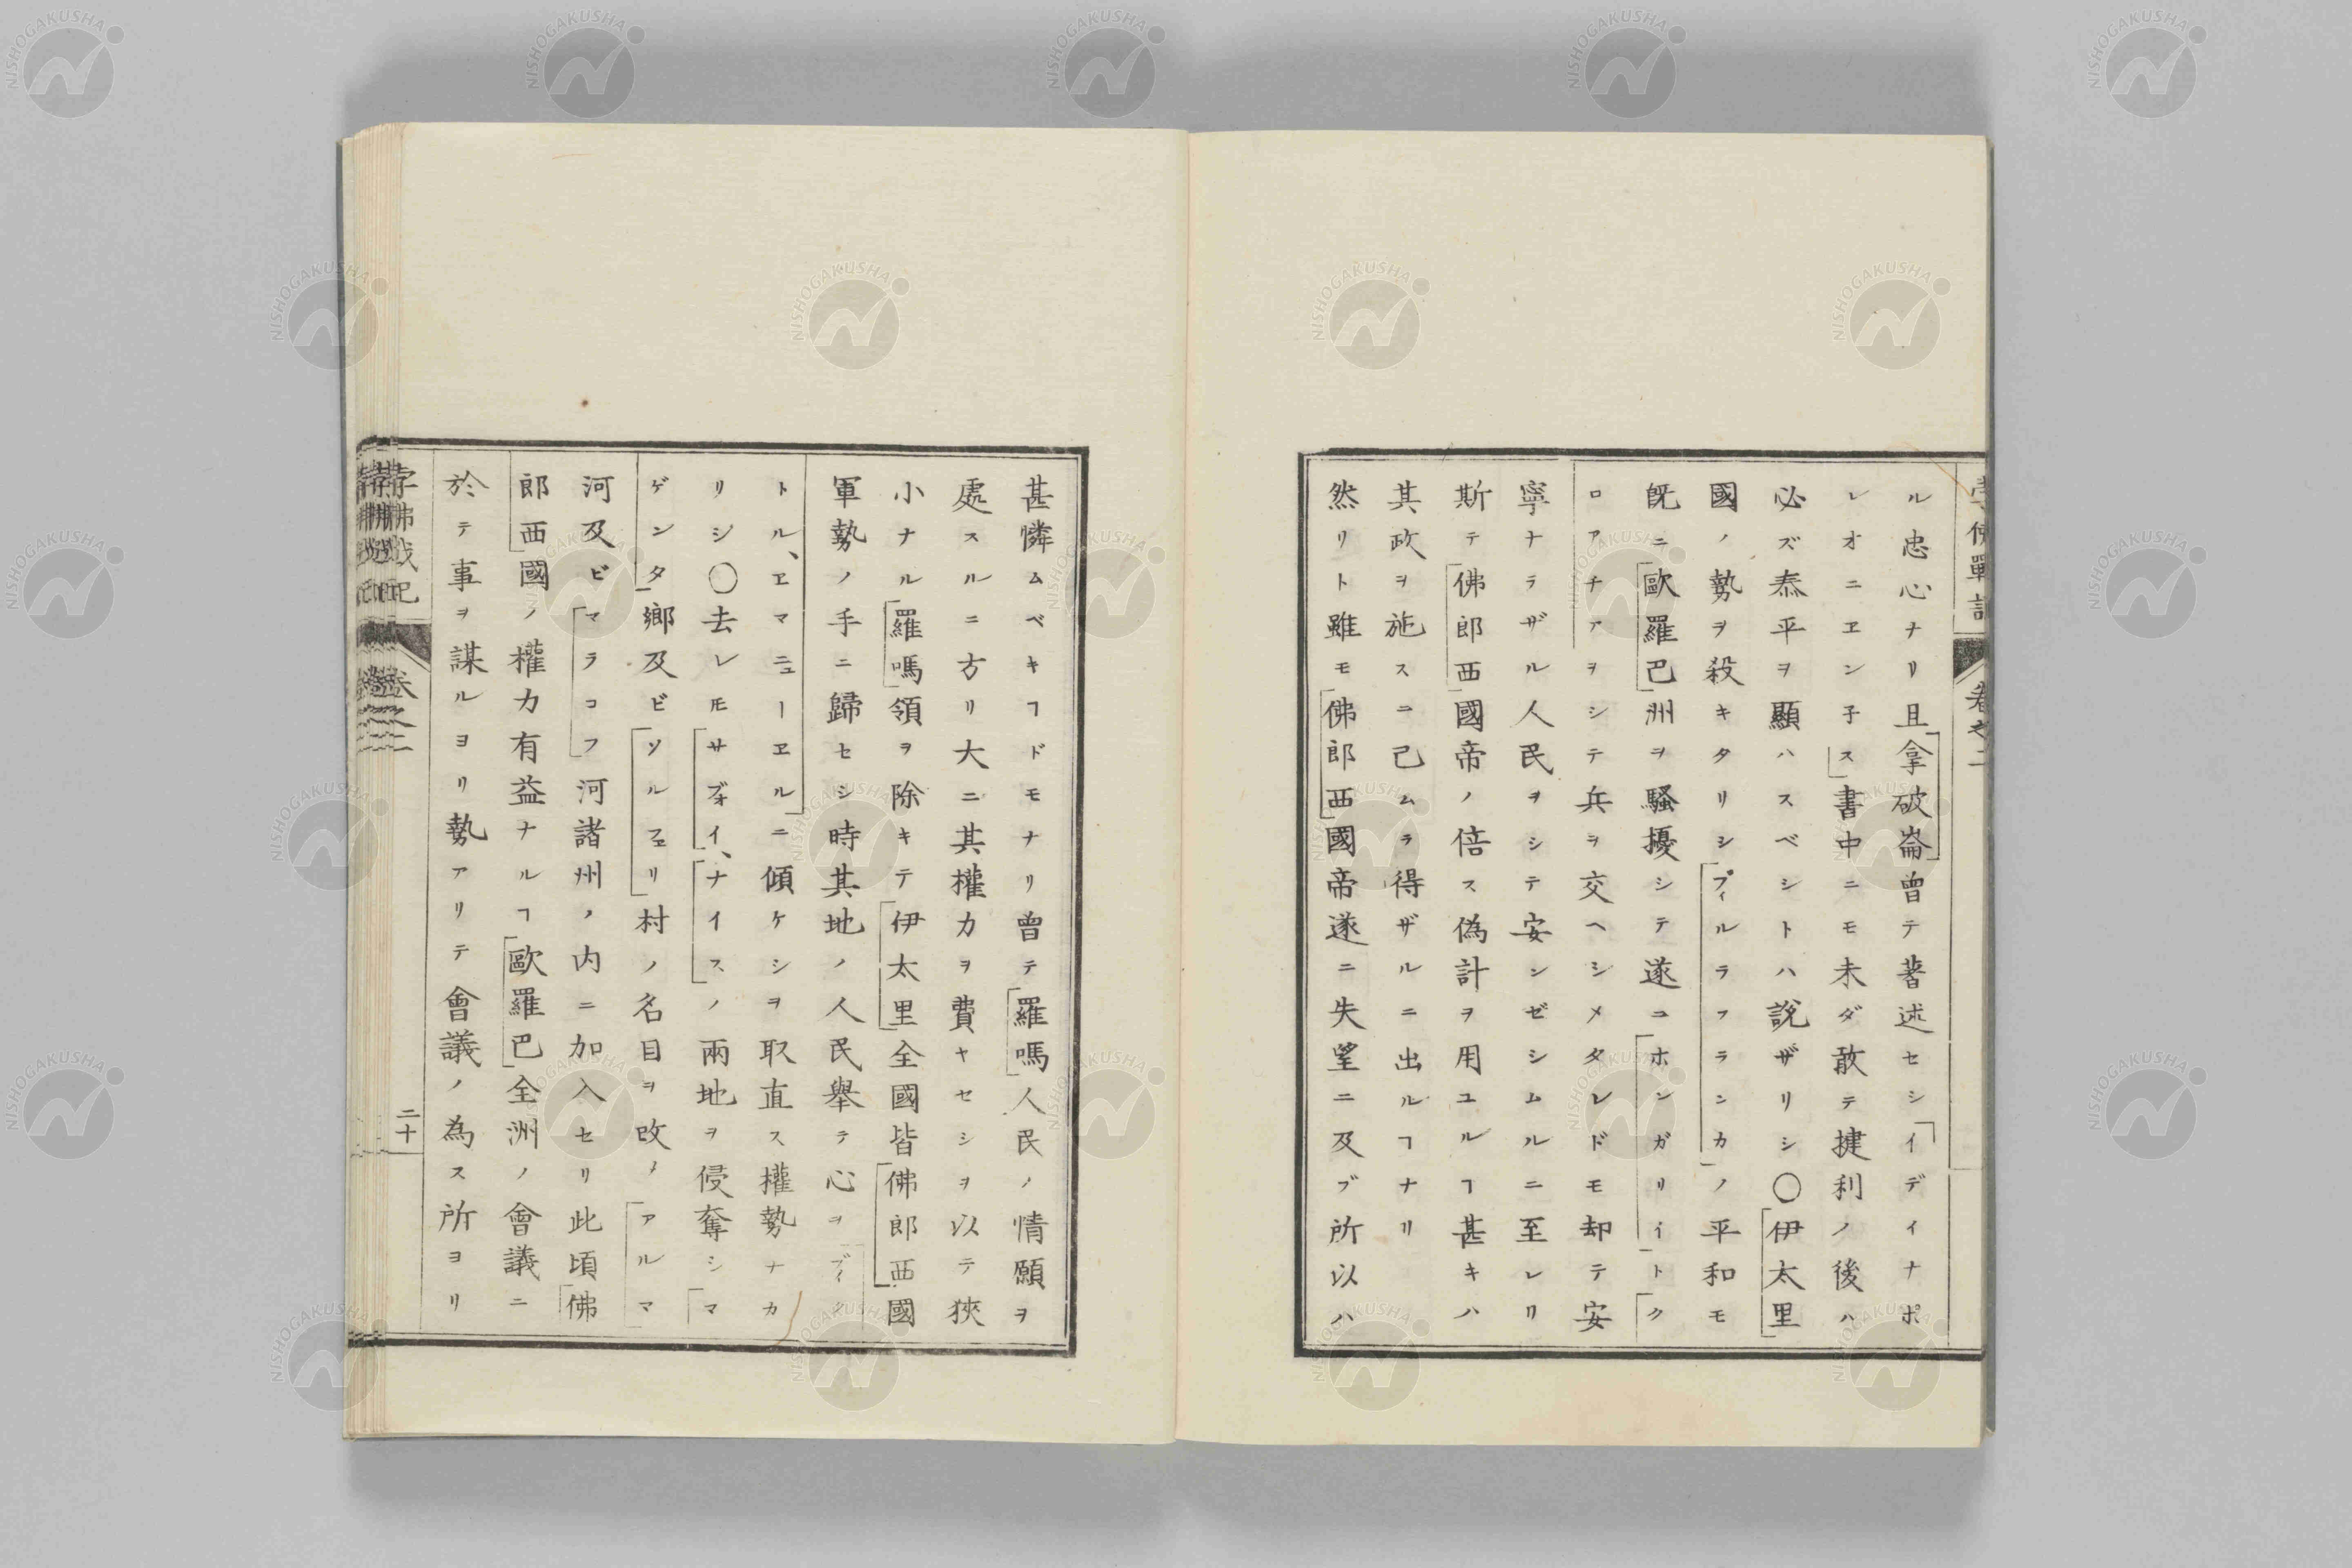 ル忠心ナリ且拿破崙曾テ著述セシ「イデイナポ
レオニヱン子ス」書中ニモ未ダ敢テ捷利ノ後ハ
必ズ泰平ヲ顯ハスベシトハ説ザリシ〇伊太里
國ノ勢ヲ殺キタリシ「ヴィルラフランカ」ノ平和モ
既ニ歐羅巴洲ヲ騷擾シテ遂ニ「ホンガリイ」ト「ク
ロアチア」ヲシテ兵ヲ交ヘシメタレドモ却テ安
寧ナラザル人民ヲシテ安ンゼシムルニ至レリ
斯テ佛郎西國帝ノ倍ス偽計ヲ用ユルヿ甚キハ
其政ヲ施スニ已ムヲ得ザルニ出ルヿナリ
然リト雖モ佛郎西國帝遂ニ失望ニ及ブ所以ハ
甚憐ムベキヿドモナリ曾テ羅嗎人民ノ情願ヲ
處スルニ方リ大ニ其權力ヲ費ヤセシヲ以テ狹
小ナル羅嗎領ヲ除キテ伊太里全國皆佛郎西國
軍勢ノ手ニ歸セシ時其地ノ人民舉テ心ヲ「ヴィク
トル、ヱマニューヱル」ニ傾ケシヲ取直ス權勢ナカ
リシ〇去レ𪜈「サヴォイ」、「ナイス」ノ兩地ヲ侵奪シ「マ
ゲンタ」鄉及ビ「ソルフェリ」村ノ名目ヲ改メ「アルマ」
河及ビ「マラコフ」河諸州ノ内ニ加入セリ此頃佛
郎西國ノ權力有益ナルヿ歐羅巴全洲ノ會議ニ
於テ事ヲ謀ルヨリ勢アリテ會議ノ為ス所ヨリ
孛佛戰記
卷之二
二十